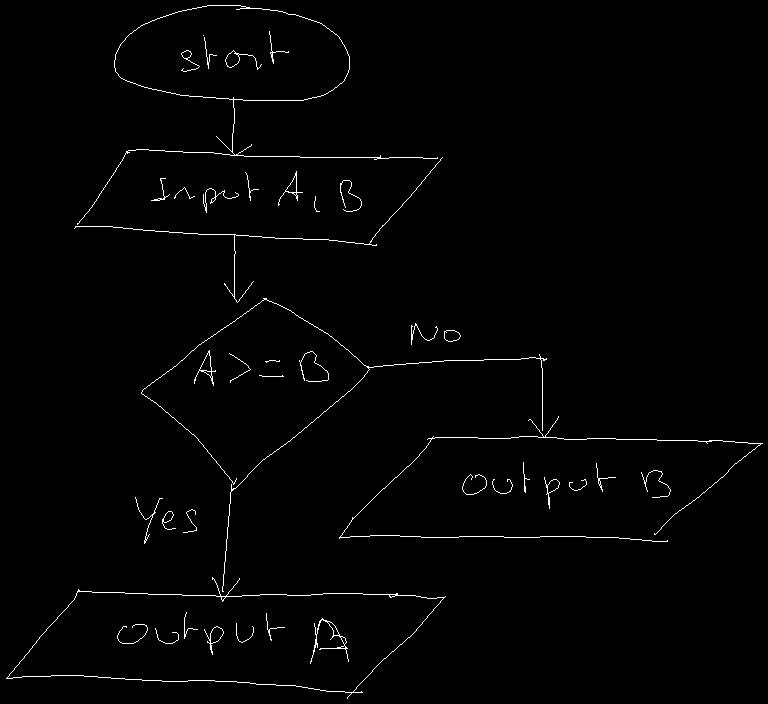 start
Input A, B
A >= B
No
output B
Yes
output A